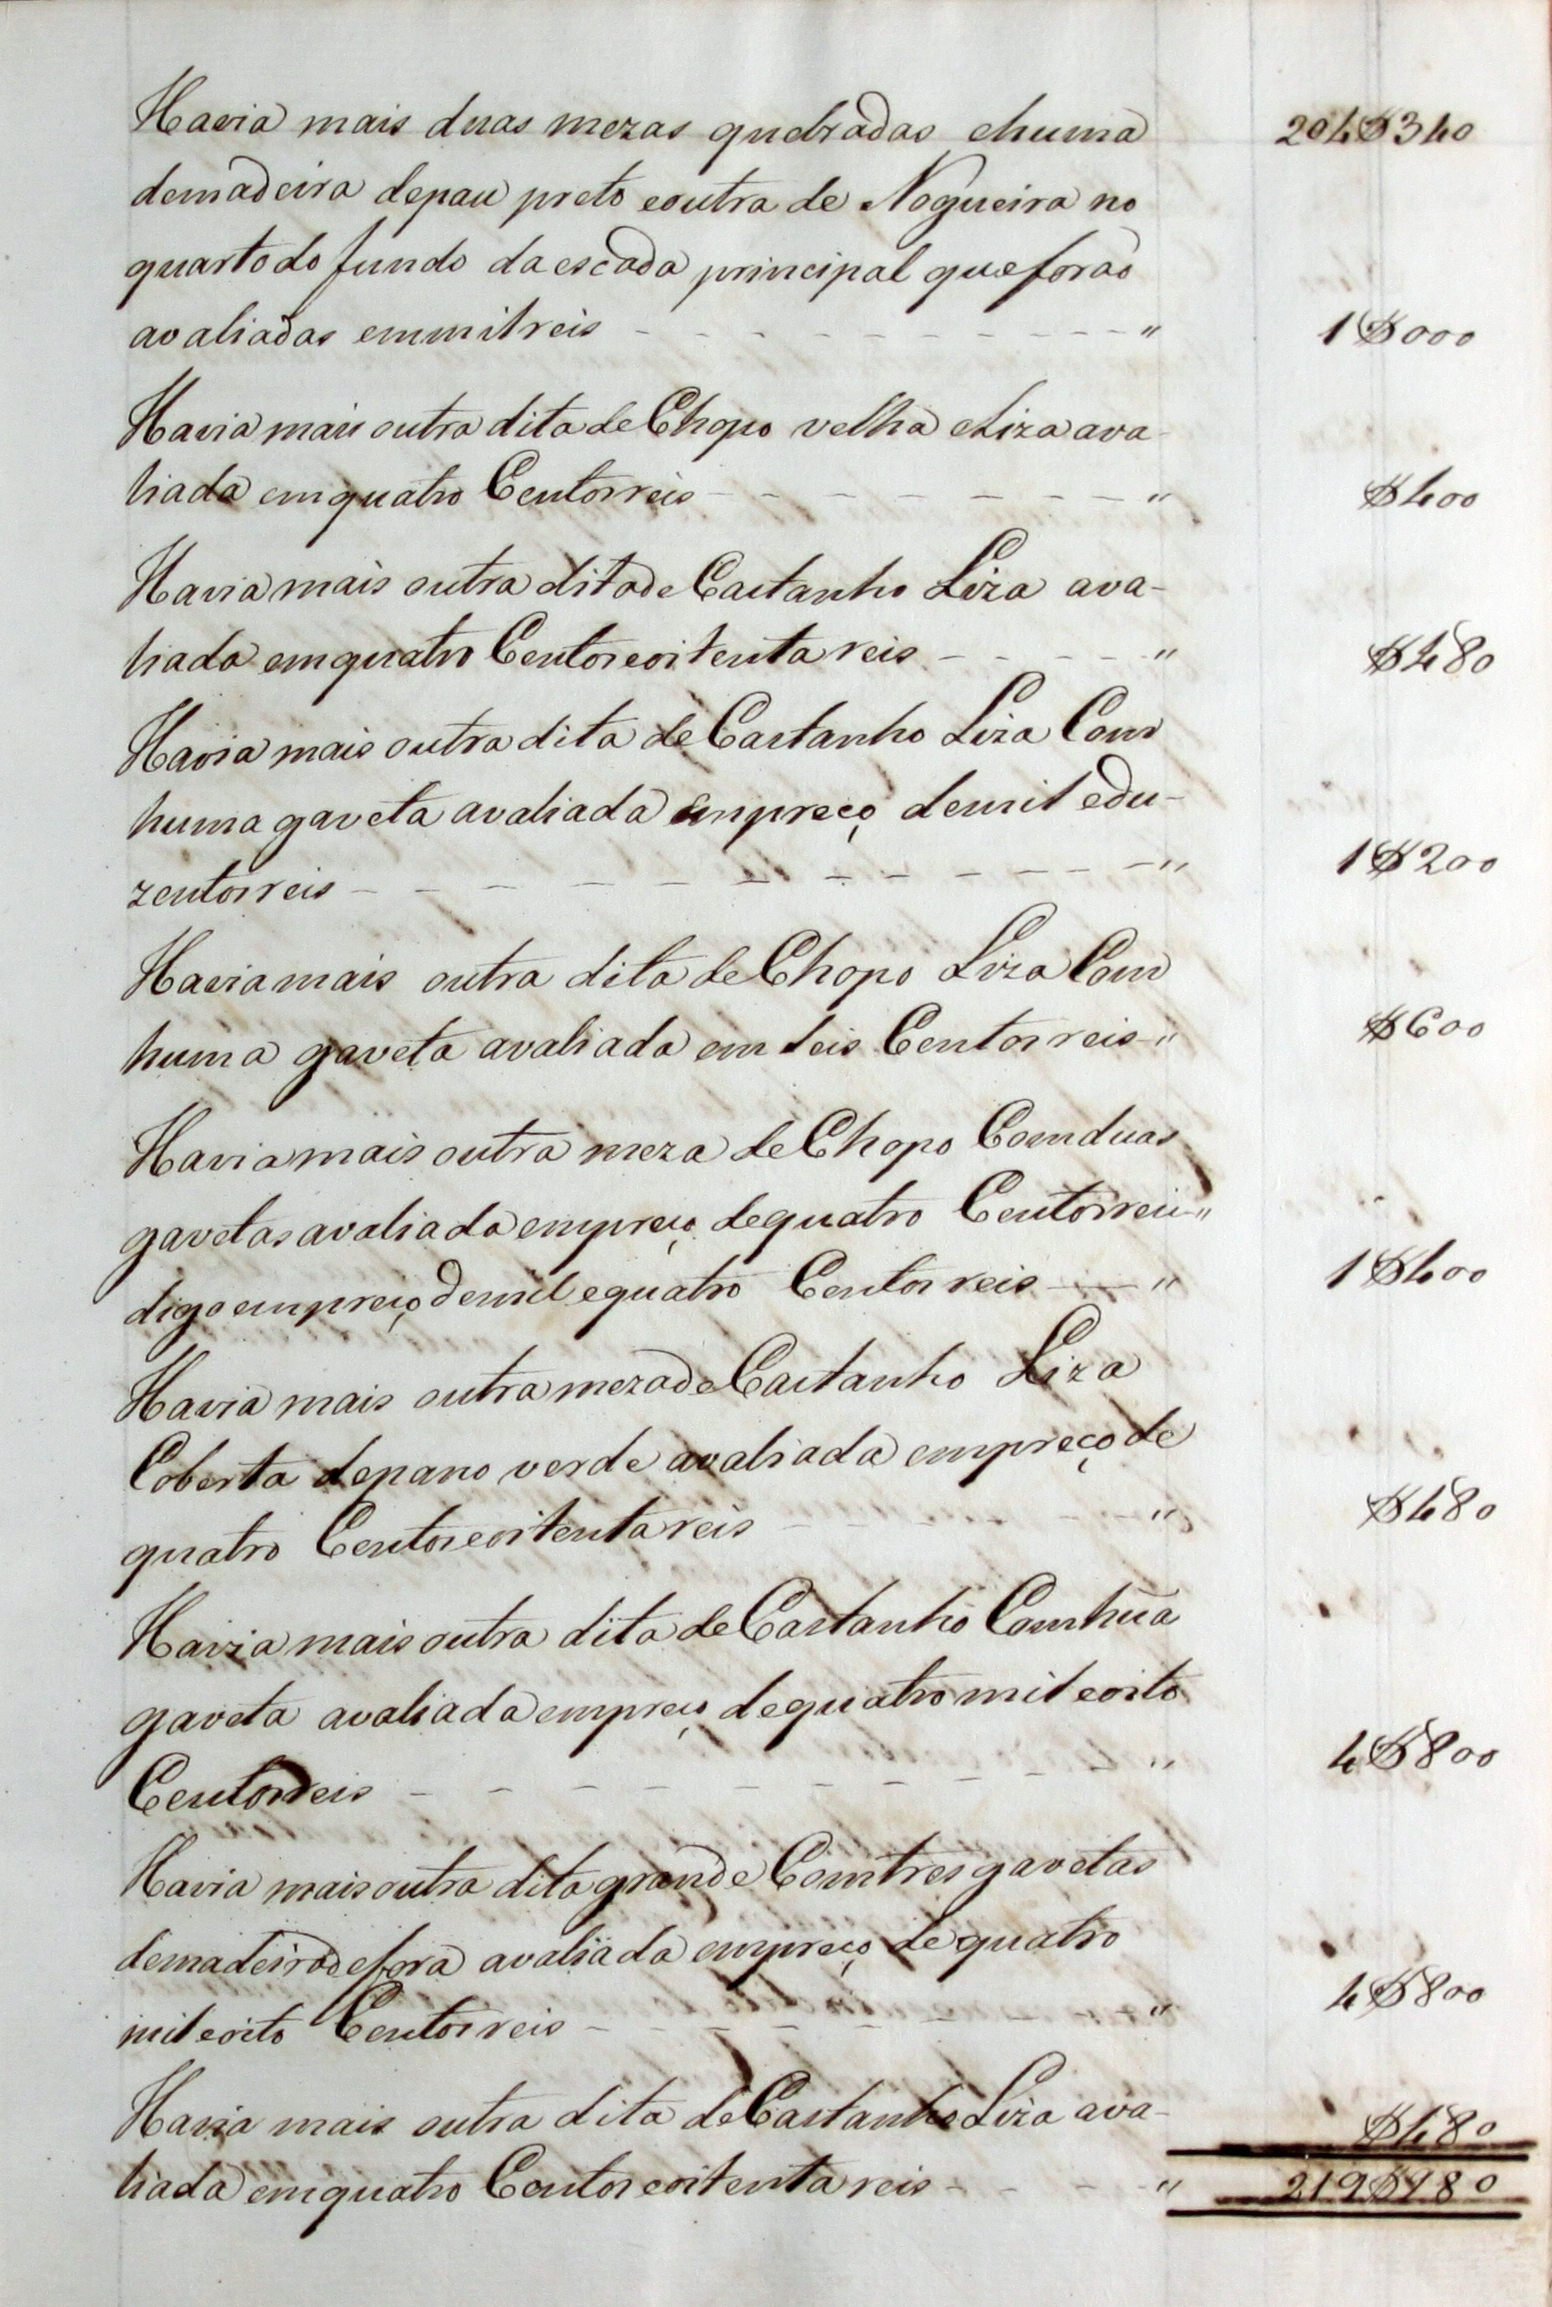 Havia mais duas mezas quebradas ehuma 204$340
demadeira depau preto eoutra de Nogueira no
quartodo fundo da escada principal queforão
avaliadas emmilreis - - - - - - - - - - " 1$000
Havia mais outra dita de Chopo velha eLiza ava-
liada emquatro Centosreis - - - - - - - - " $400
Havia mais outra ditade Castanho Liza ava-
liada emquatro Centoseoitenta reis - - - - " $480
Havia mais outra dita de Castanho Liza Com
huma gaveta avaliada empreço demil edu-
zentosreis - - - - - - - - - - - " 1$200
Haviamais outra dita de Chopo Liza Com
huma gaveta avaliada em seis Centosreis " $600
Haviamais outra meza de Chopo Comduas
gavetas avaliada empreço dequatro Centosreis "
digo empreço demil equatro Centos reis - - " 1$400
Havia mais outra mezade Castanho Liza
Coberta depano verde avaliada empreço de
quatro Centoseoitenta reis - - - - - " $480
Havia mais outra dita de Castanho Comhũa
gaveta avaliada empreço dequatro mil eoito
Centosreis - - - - - - - - - - " 4$800
Havia mais outra dita grande Comtres gavetas
demadeiradefora avaliada empreço de quatro
mil eoito Centos reis - - - - - - - " 4$800
Havia mais outra dita de Castanho Liza ava- $480
liada emquatro Centos eoitenta reis - - - - " 219$980